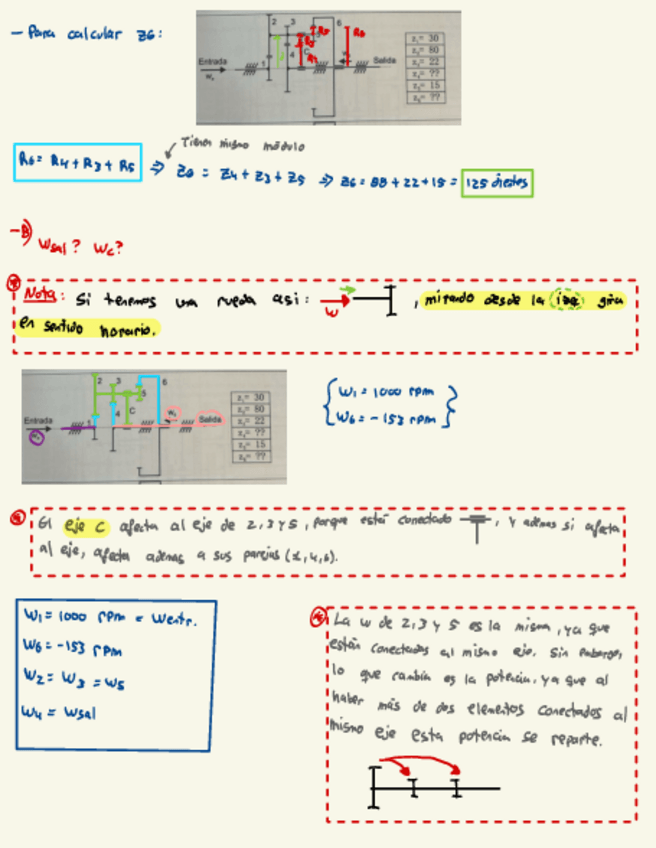 - Para calcular Z6:
2 3 6
R5
R6
R3
R4
4
C
1
Entrada
Salida
z₁= 30
z₂= 80
z₃= 22
z₄= ??
z₅= 15
z₆= ??
Tienen mismo módulo
R6 = R4 + R3 + R5 ⇒ Z6 = Z4 + Z3 + Z5 ⇒ Z6 = 88 + 22 + 15 = 125 dientes
-B)
Wsal? Wc?
Nota: Si tenemos una rueda asi: W , mirando desde la izq gira
en sentido horario.
2 3 6
5
4 C
1
Entrada
Salida
z₁= 30
z₂= 80
z₃= 22
z₄= ??
z₅= 15
z₆= ??
W1 = 1000 rpm
W6 = -153 rpm
El eje C afecta al eje de 2, 3 y 5, porque está conectado , y ademas si afecta
al eje, afecta ademas a sus parejas (1,4,6).
W1 = 1000 rpm = Wentr.
W6 = -153 rpm
W2 = W3 = W5
W4 = Wsal
La w de 2, 3 y 5 es la misma, ya que
están conectados al mismo eje. Sin embargo,
lo que cambia es la potencia, ya que al
haber más de dos elementos conectados al
mismo eje esta potencia se reparte.